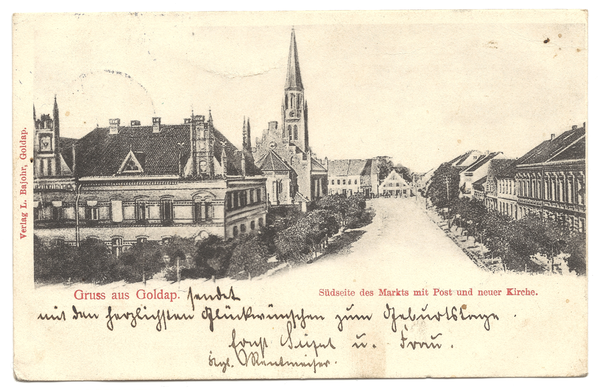 Verlag L. Bajohr, Goldap.
Gruss aus Goldap. sendet
Südseite des Markts mit Post und neuer Kirche.
mit den herzlichsten Glückwünschen zum Geburtstage.
Ernst u. Frau.